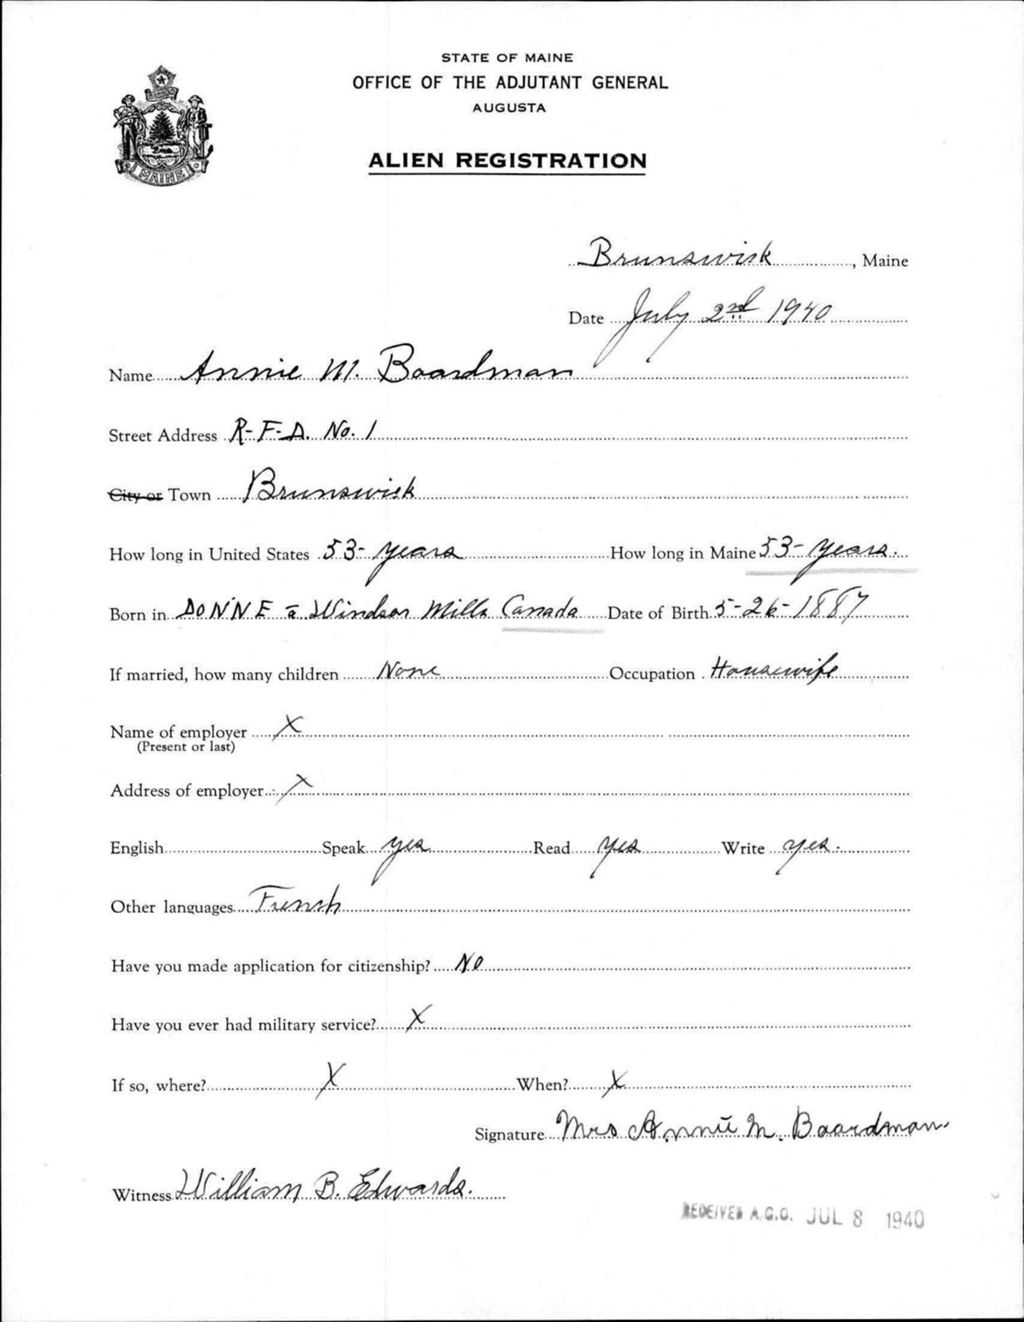 STATE OF MAINE
OFFICE OF THE ADJUTANT GENERAL
AUGUSTA
MAINE
ALIEN REGISTRATION
Brunswick, Maine
Date July 2nd 1940
Name Annie M. Boardman
Street Address R-F-D. No. 1
City or Town Brunswick
How long in United States 53- years How long in Maine 53- years.
Born in Windsor Mills Canada Date of Birth 5-26-1887
If married, how many children None Occupation Housewife
Name of employer X
(Present or last)
Address of employer X
English Speak yes Read yes Write yes.
Other languages French
Have you made application for citizenship? No
Have you ever had military service? X
If so, where? X When? X
Signature Mrs Annie M. Boardman
Witness William B. Edwards.
RECEIVED A.G.O. JUL 8 1940